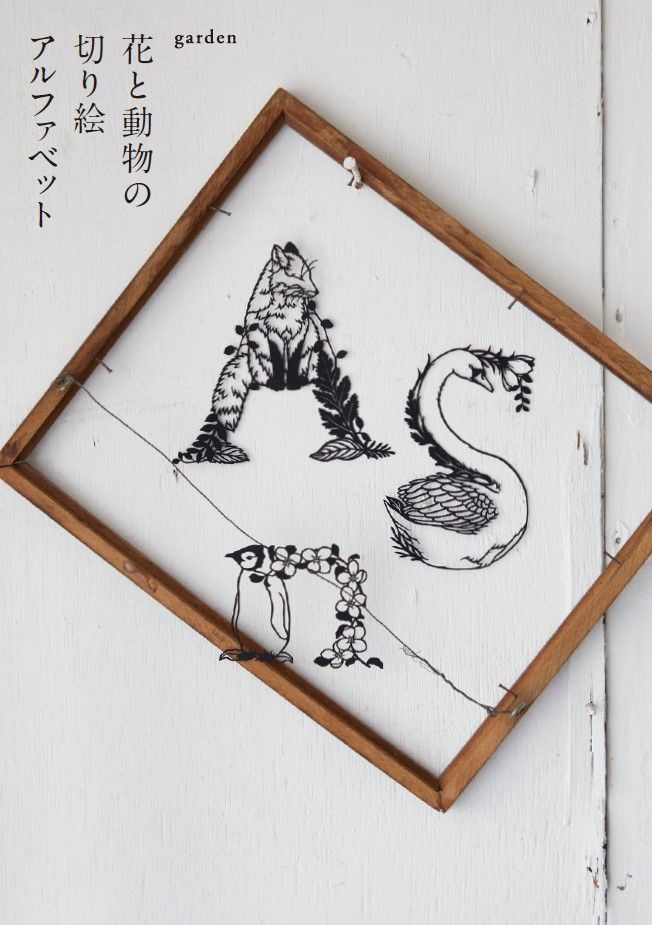 花と動物の
切り絵
アルファベット
garden
A
S
n